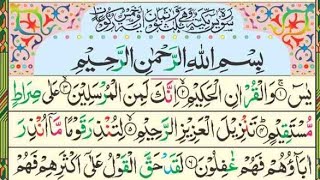 بِسْمِ اللهِ الرَّحْمٰنِ الرَّحِيْمِ
يٰسٓ ۚ﴿۱﴾ وَالْقُرْاٰنِ الْحَكِيْمِ ۙ﴿۲﴾ اِنَّكَ لَمِنَ الْمُرْسَلِيْنَ ۙ﴿۳﴾ عَلٰى صِرَاطٍ
مُّسْتَقِيْمٍ ؕ﴿۴﴾ تَنْزِيْلَ الْعَزِيْزِ الرَّحِيْمِ ۙ﴿۵﴾ لِتُنْذِرَ قَوْمًا مَّاۤ اُنْذِرَ
اٰبَآؤُهُمْ فَهُمْ غٰفِلُوْنَ ﴿۶﴾ لَقَدْ حَقَّ الْقَوْلُ عَلٰۤى اَكْثَرِهِمْ فَهُمْ